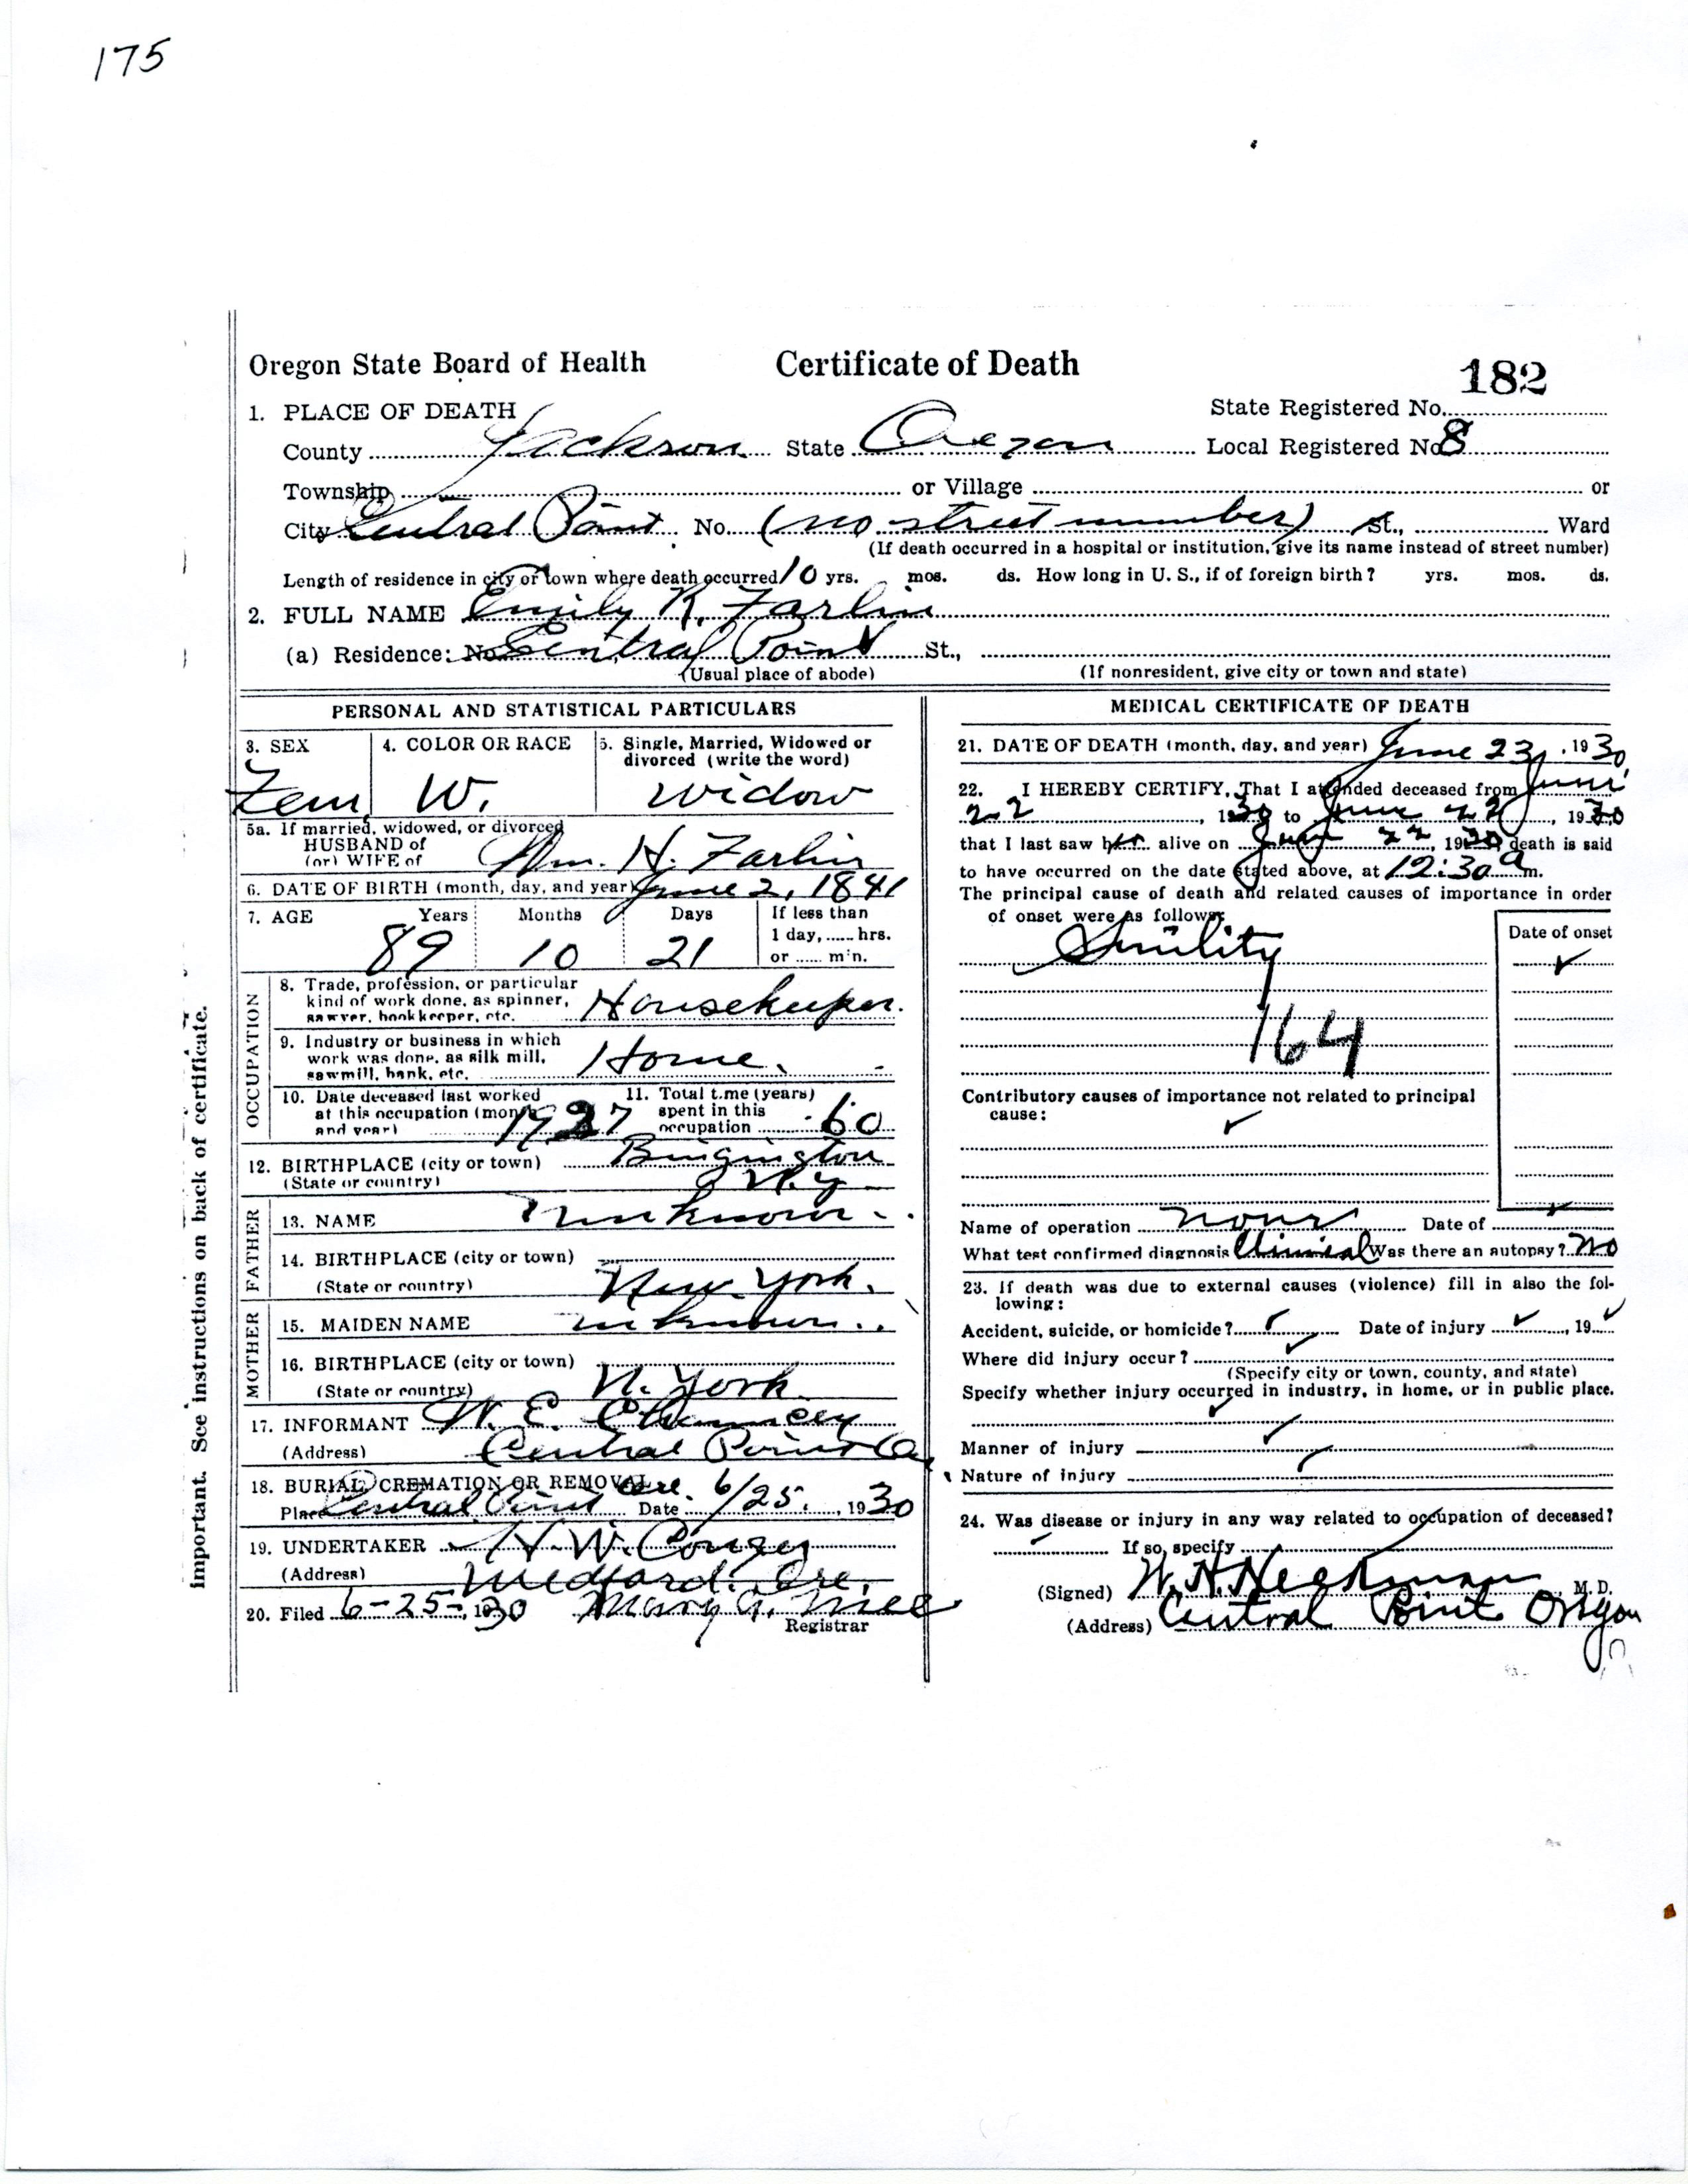 175
Oregon State Board of Health Certificate of Death 182
1. PLACE OF DEATH State Registered No.
County Jackson State Oregon Local Registered No. 8
Township or Village or
City Central Point No. (no street number) St., Ward
(If death occurred in a hospital or institution, give its name instead of street number)
Length of residence in city or town where death occurred 10 yrs. mos. ds. How long in U. S., if of foreign birth? yrs. mos. ds.
2. FULL NAME Emily R. Farlin
(a) Residence: No. Central Point St.,
(Usual place of abode) (If nonresident, give city or town and state)
PERSONAL AND STATISTICAL PARTICULARS
3. SEX 4. COLOR OR RACE 5. Single, Married, Widowed or
divorced (write the word)
Fem W. Widow
5a. If married, widowed, or divorced
HUSBAND of
(or) WIFE of Wm. H. Farlin
6. DATE OF BIRTH (month, day, and year) June 2, 1841
7. AGE Years Months Days If less than
1 day, ...... hrs.
89 10 21 or ...... min.
OCCUPATION
8. Trade, profession, or particular
kind of work done, as spinner,
sawyer, bookkeeper, etc. Housekeeper.
9. Industry or business in which
work was done, as silk mill,
sawmill, bank, etc. Home.
10. Date deceased last worked 11. Total time (years)
at this occupation (month spent in this
and year) 1927 occupation 60
12. BIRTHPLACE (city or town) Bingington
(State or country) N.y
FATHER
13. NAME unknown
14. BIRTHPLACE (city or town)
(State or country) New York.
MOTHER
15. MAIDEN NAME unknown
16. BIRTHPLACE (city or town)
(State or country) N. York
17. INFORMANT W. E.
(Address) Central Point
18. BURIAL, CREMATION OR REMOVAL
Place Central Point Ore. Date 6/25, 1930
19. UNDERTAKER H. W. Conger
(Address) Medford. Ore.
20. Filed 6-25-, 1930 Mary A. Mee
Registrar
MEDICAL CERTIFICATE OF DEATH
21. DATE OF DEATH (month, day, and year) June 23, 1930
22. I HEREBY CERTIFY, That I attended deceased from June
22, 1930 to June 22, 1930
that I last saw her alive on June 22, 1930, death is said
to have occurred on the date stated above, at 12:30 a m.
The principal cause of death and related causes of importance in order
of onset were as follows:
Date of onset
Senility
164
Contributory causes of importance not related to principal
cause:
Name of operation none Date of
What test confirmed diagnosis Clinical Was there an autopsy? No
23. If death was due to external causes (violence) fill in also the fol-
lowing:
Accident, suicide, or homicide? Date of injury , 19
Where did injury occur?
(Specify city or town, county, and state)
Specify whether injury occurred in industry, in home, or in public place.
Manner of injury
Nature of injury
24. Was disease or injury in any way related to occupation of deceased?
If so, specify
(Signed) W. H. Heckman M. D.
(Address) Central Point Oregon
important. See instructions on back of certificate.